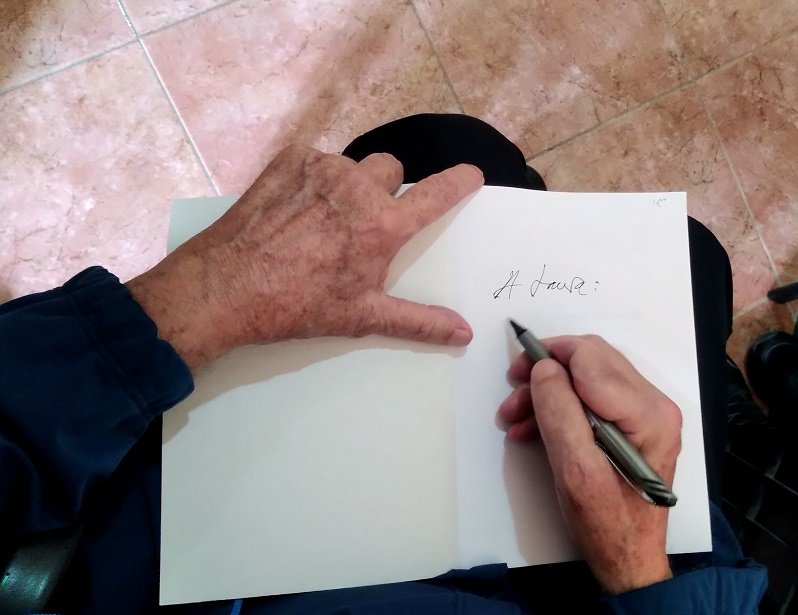 A Laura: